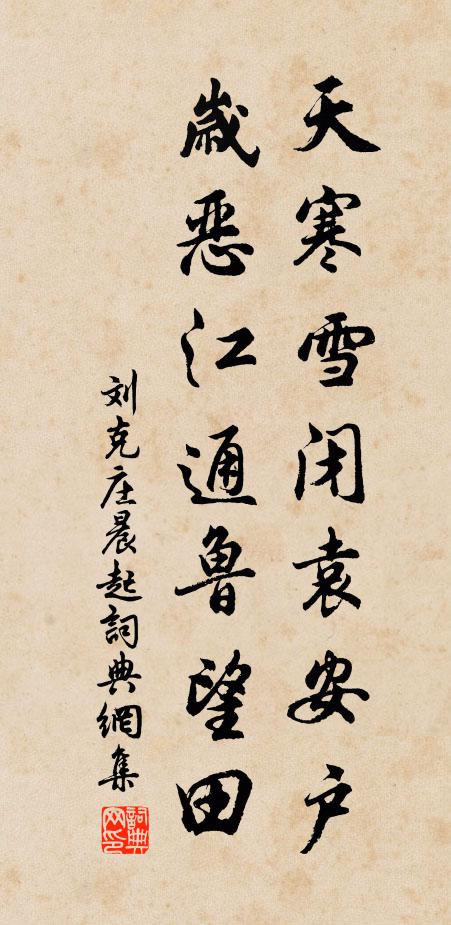 天寒雪闭袁安户
岁恶江通鲁望田
刘克庄晨起詞典網集
詞典網印